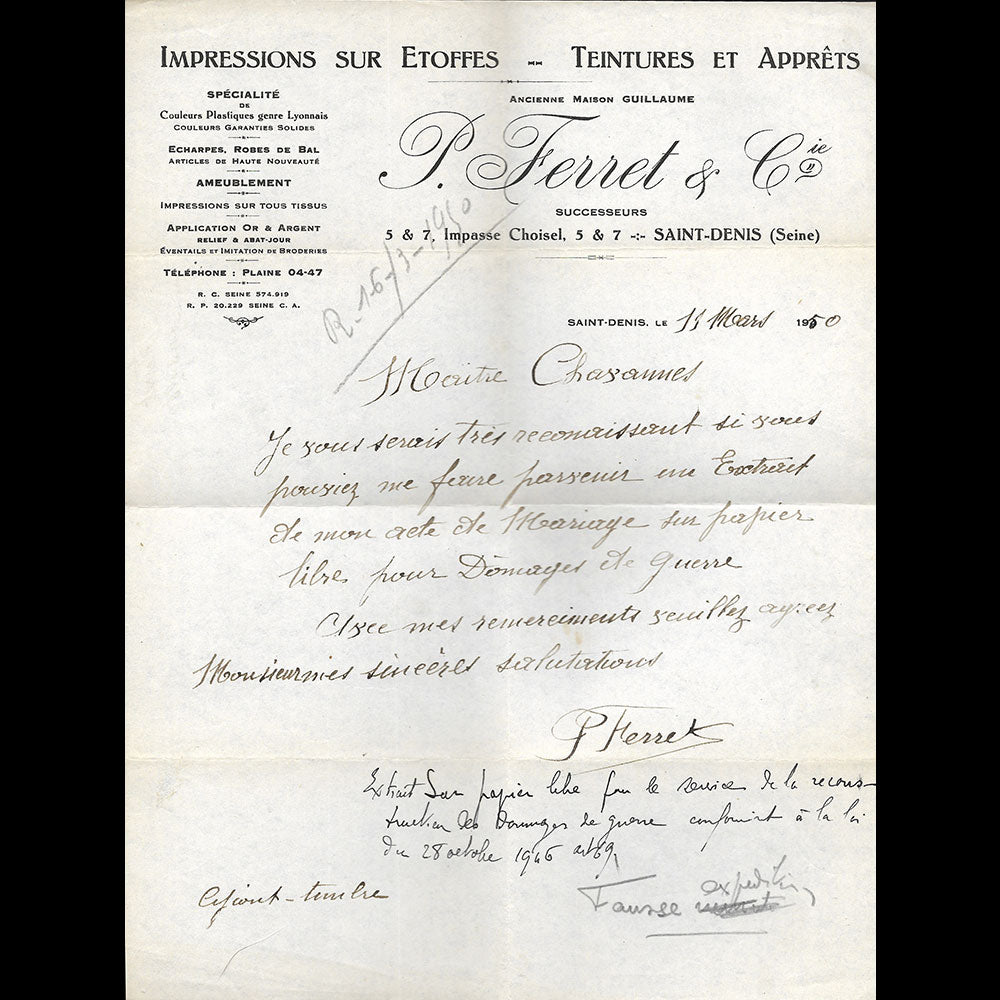 IMPRESSIONS SUR ETOFFES -- TEINTURES ET APPRÊTS
SPÉCIALITÉ
DE
Couleurs Plastiques genre Lyonnais
COULEURS GARANTIES SOLIDES
ECHARPES, ROBES DE BAL
ARTICLES DE HAUTE NOUVEAUTÉ
AMEUBLEMENT
IMPRESSIONS SUR TOUS TISSUS
APPLICATION OR & ARGENT
RELIEF & ABAT-JOUR
ÉVENTAILS ET IMITATION DE BRODERIES
TÉLÉPHONE : PLAINE 04-47
R. C. SEINE 574.919
R. P. 20.229 SEINE C. A.
ANCIENNE MAISON GUILLAUME
P. Ferret & Cie
SUCCESSEURS
5 & 7, Impasse Choisel, 5 & 7 -:- SAINT-DENIS (Seine)
R. 16-3-1950
SAINT-DENIS, LE 15 Mars 1950
Maitre Chavannes
Je vous serais très reconaissant si vous
pouviez me faire parvenir un Extrait
de mon acte de Mariage sur papier
libre pour Dômages de Guerre
Avec mes remerciments veuillez agréez
Monsieur mes sincères salutations
P Ferret
Extrait sur papier libre pour le service de la recons-
truction des Dommages de guerre conformt à la loi
du 28 octobre 1946 art 69
ci joint - timbre
Fausse expédition